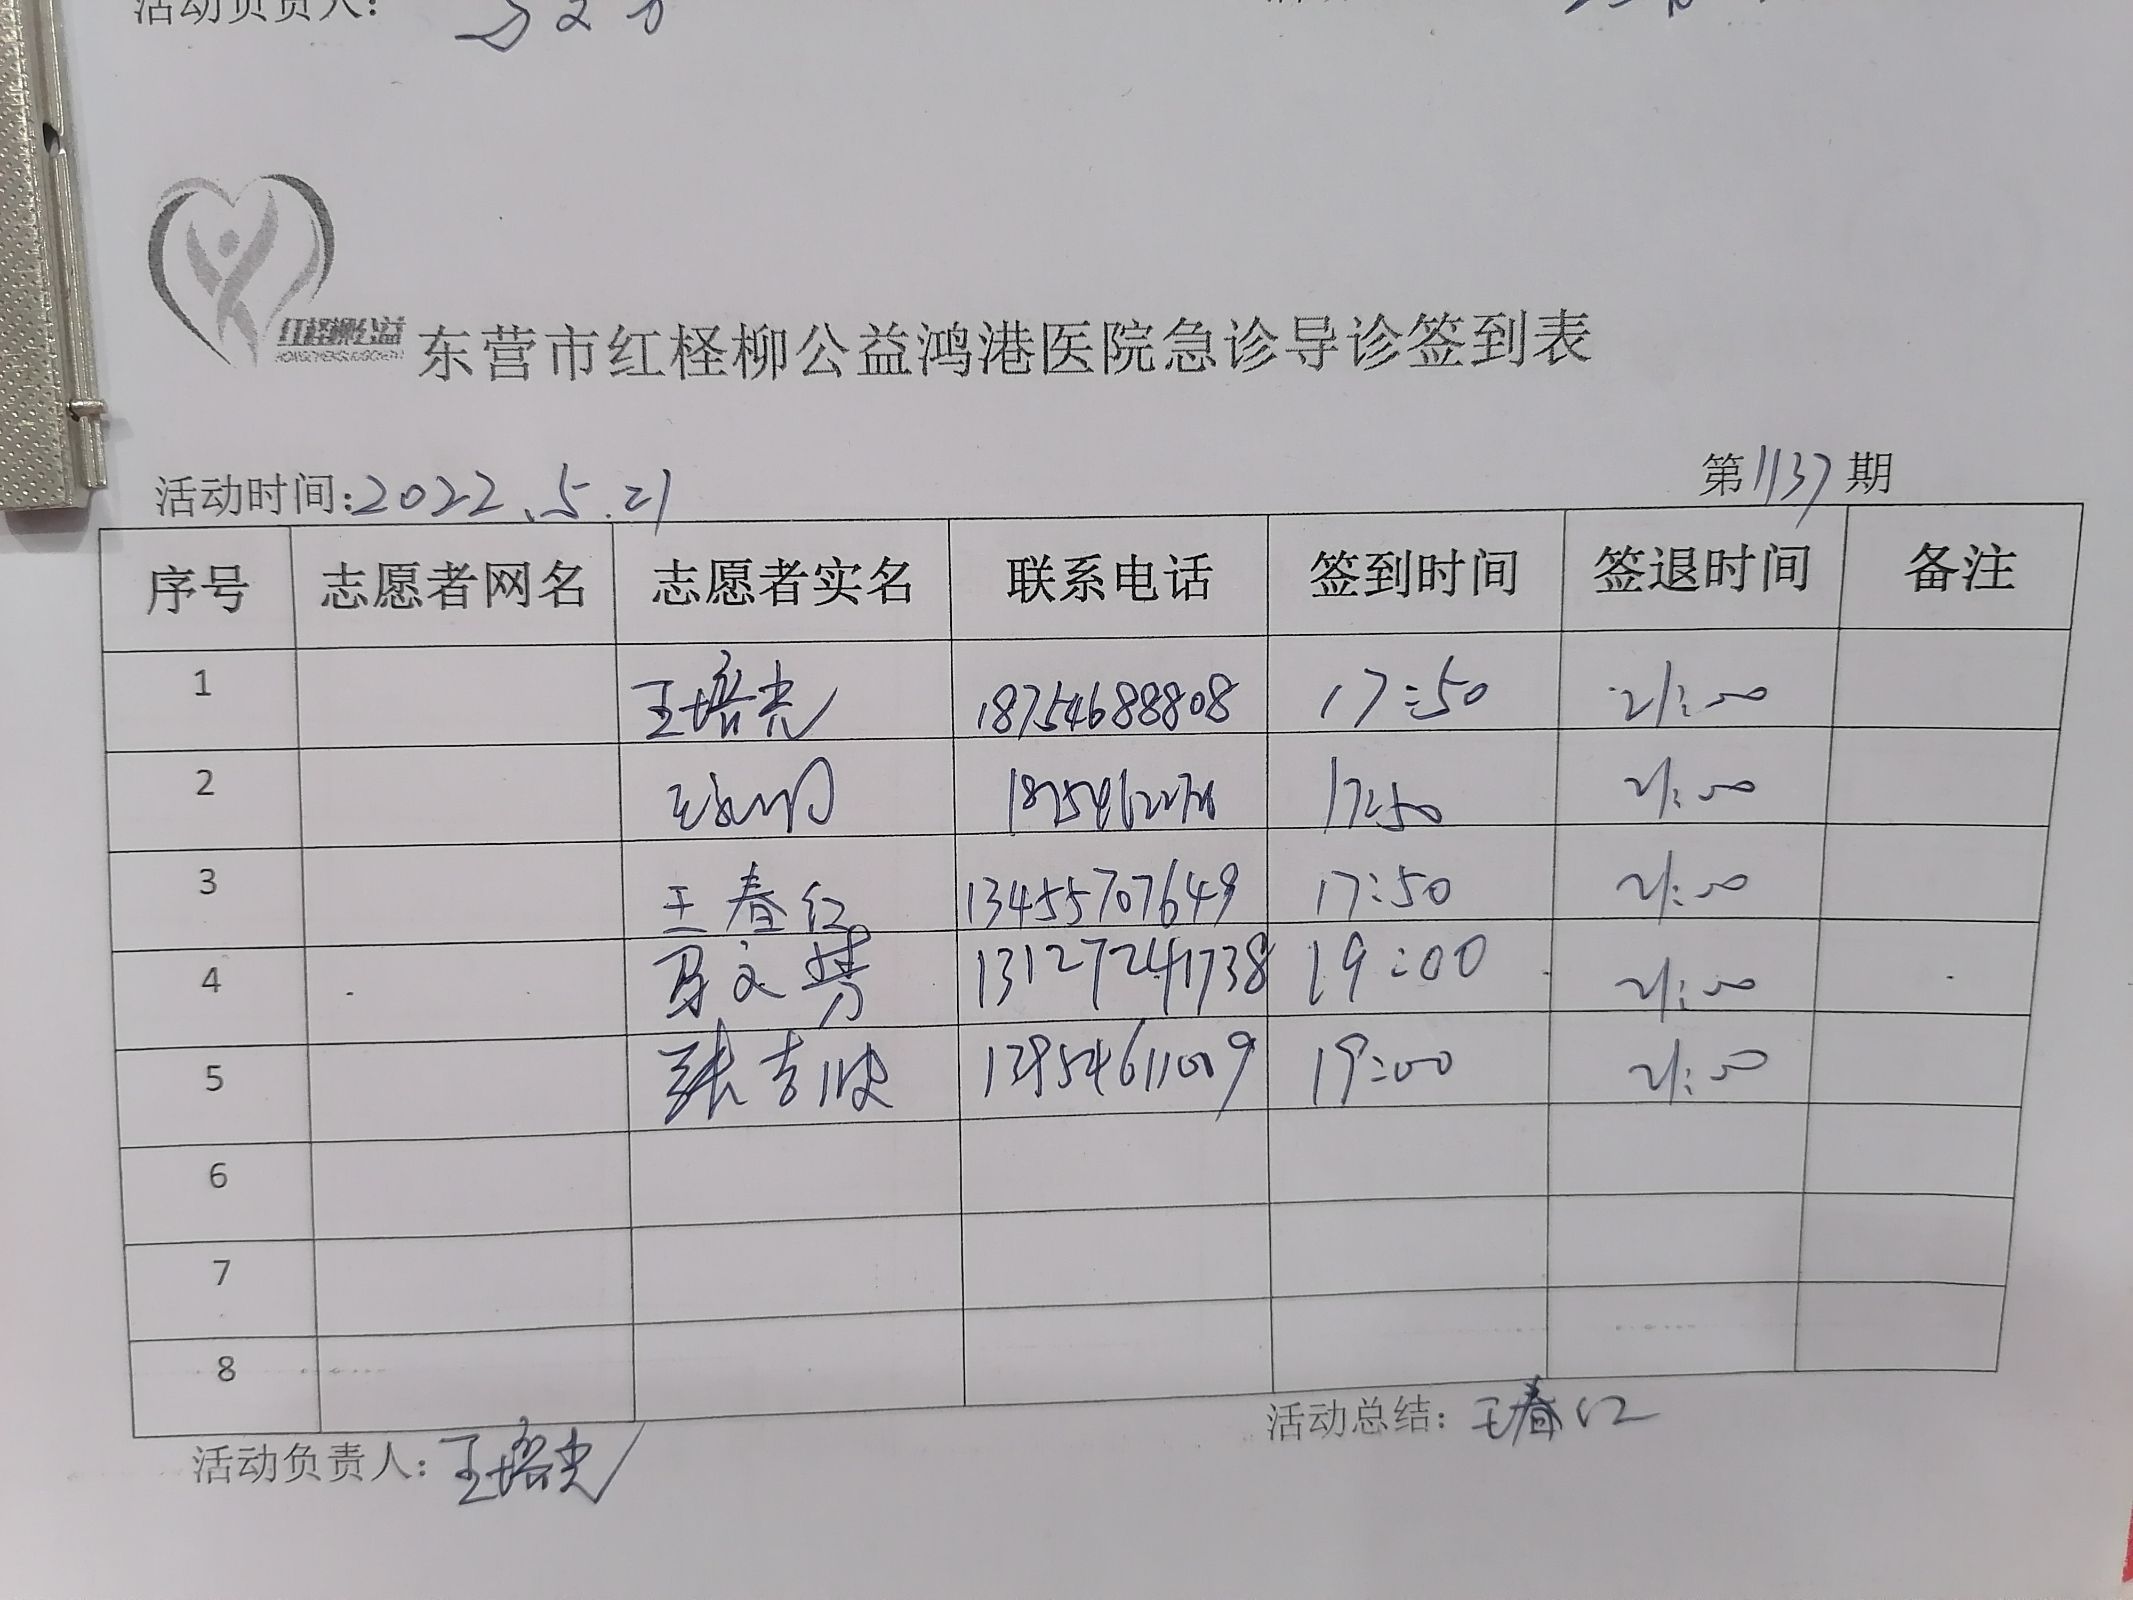 活动负责人：
红柽柳公益
东营市红柽柳公益鸿港医院急诊导诊签到表
活动时间:2022.5.21 第1137期
序号 志愿者网名 志愿者实名 联系电话 签到时间 签退时间 备注
1 王培光 18754688808 17:50 21:00
2 17:50 21:00
3 王春红 13455707649 17:50 21:00
4 马文芳 13127241738 19:00 21:00
5 张吉 13954611009 19:00 21:00
6
7
8
活动负责人：王培光 活动总结：王春红